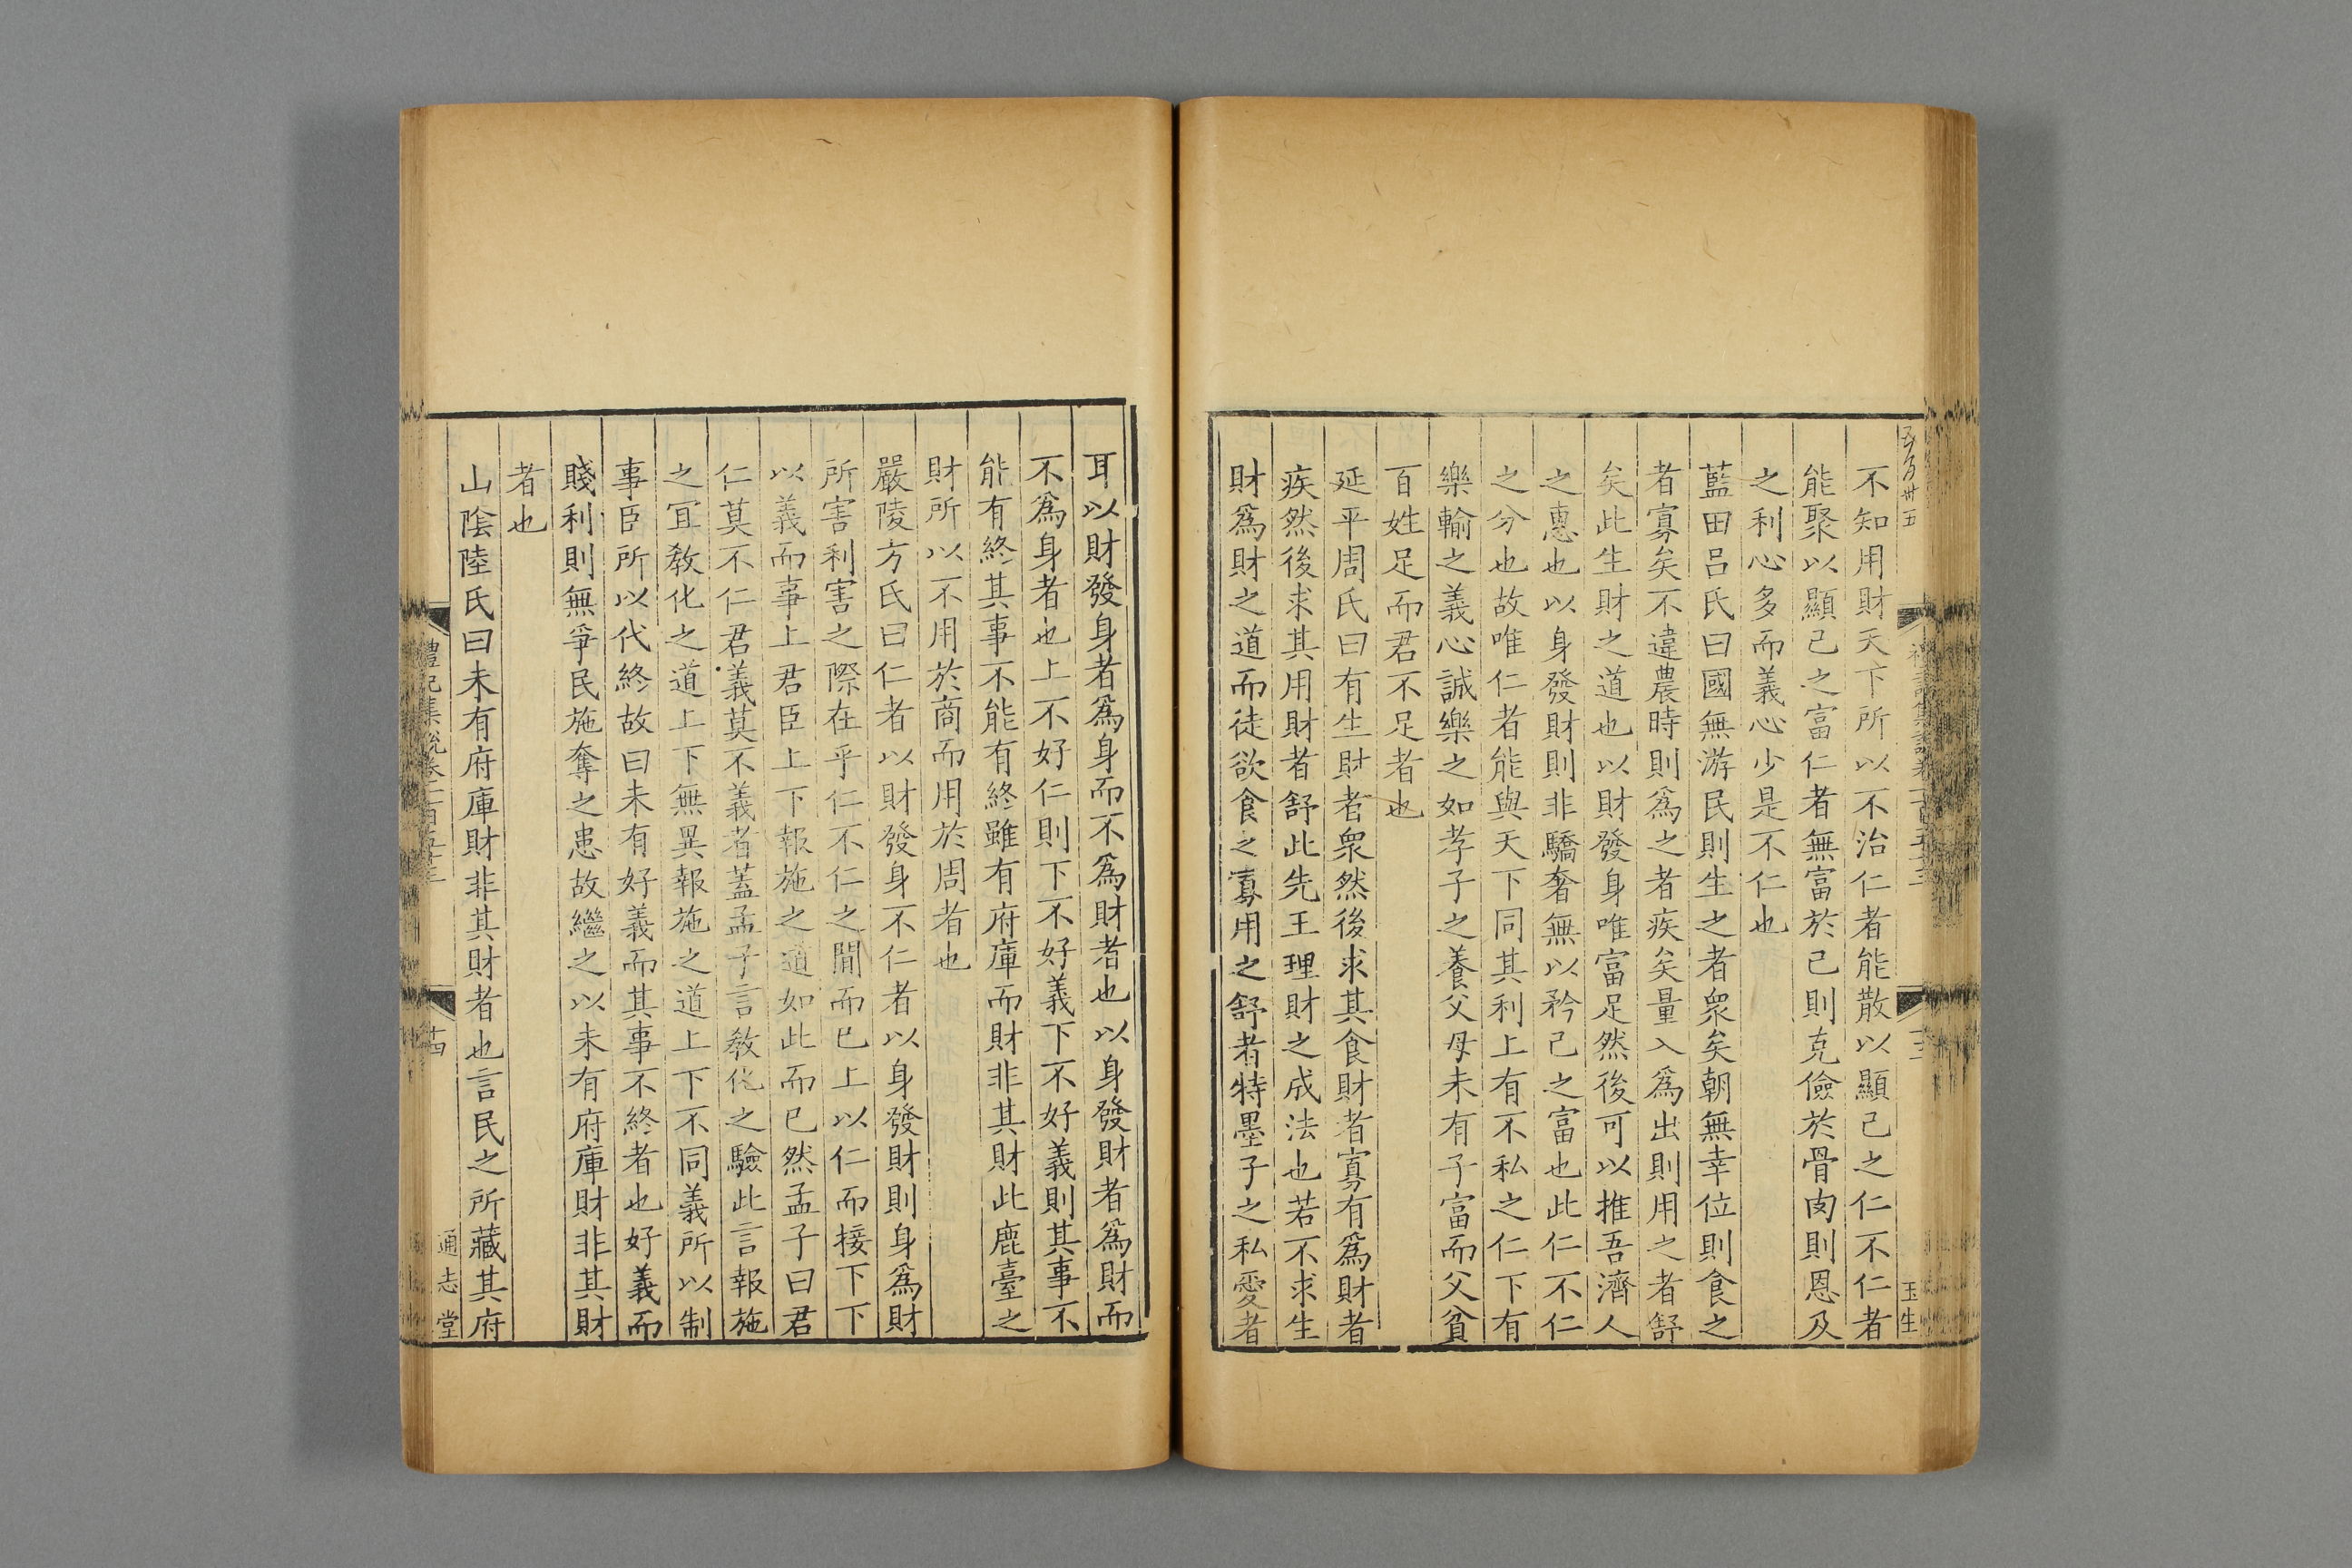 不知用財天下所以不治仁者能散以顯己之仁不仁者
能聚以顯己之富仁者無富於己則克儉於骨肉則恩及
之利心多而義心少是不仁也
藍田呂氏曰國無游民則生之者衆矣朝無幸位則食之
者寡矣不違農時則爲之者疾矣量入爲出則用之者舒
矣此生財之道也以財發身唯富足然後可以推吾濟人
之惠也以身發財則非驕奢無以矜己之富也此仁不仁
之分也故唯仁者能與天下同其利上有不私之仁下有
樂輸之義心誠樂之如孝子之養父母未有子富而父貧
百姓足而君不足者也
延平周氏曰有生財者衆然後求其食財者寡有爲財者
疾然後求其用財者舒此先王理財之成法也若不求生
財爲財之道而徒欲食之寡用之舒者特墨子之私愛者
玉生
耳以財發身者爲身而不爲財者也以身發財者爲財而
不爲身者也上不好仁則下不好義下不好義則其事不
能有終其事不能有終雖有府庫而財非其財此鹿臺之
財所以不用於商而用於周者也
嚴陵方氏曰仁者以財發身不仁者以身發財則身爲財
所害利害之際在乎仁不仁之閒而已上以仁而接下下
以義而事上君臣上下報施之道如此而已然孟子曰君
仁莫不仁君義莫不義者蓋孟子言敎化之驗此言報施
之宜敎化之道上下無異報施之道上下不同義所以制
事臣所以代終故曰未有好義而其事不終者也好義而
賤利則無爭民施奪之患故繼之以未有府庫財非其財
者也
山陰陸氏曰未有府庫財非其財者也言民之所藏其府
禮記集說卷一百五十三
十四
通志堂